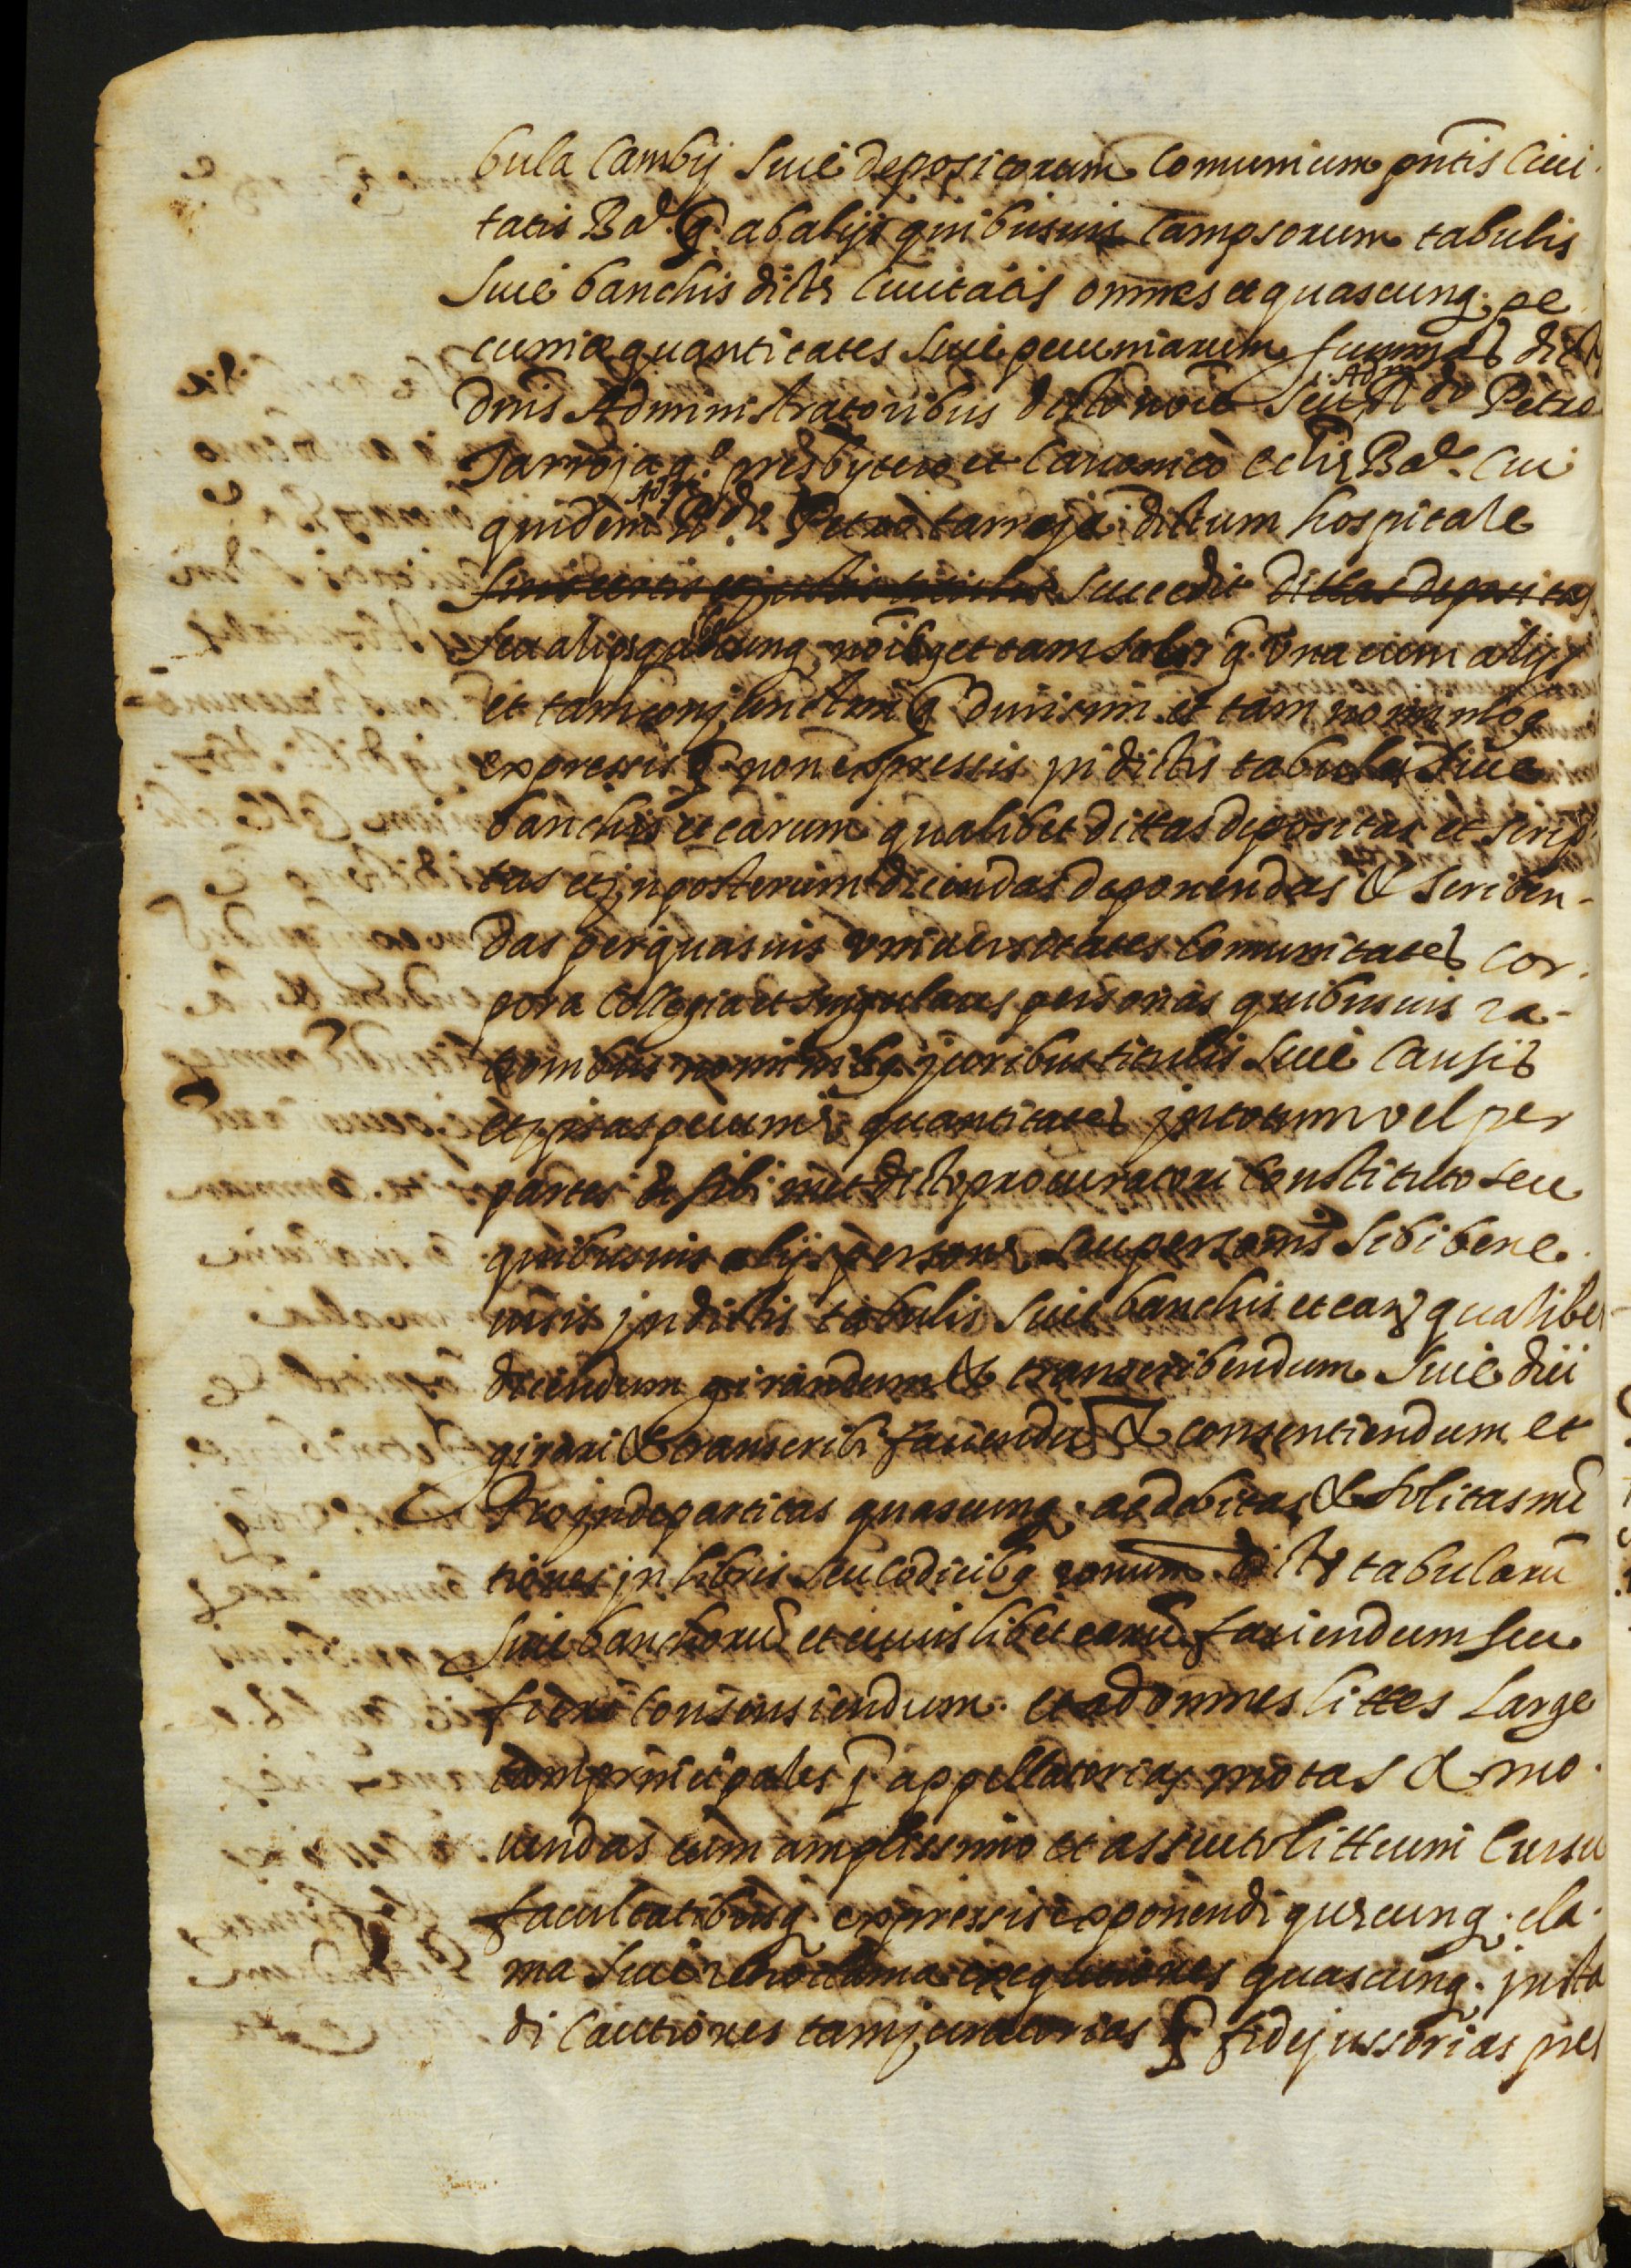 bula Cambij siue depositorum comunium pñtis Ciui.
tatis Bar. q̃. ab alijs quibusuis campsorum tabulis
siue banchis dictæ Ciuitatis omnes et quascunq; pe
cuniæ quantitates siue pecuniarum summas dictis
dnis Administratoribus dicto noĩe seu Adm. Rdo Petro
Tarroja q.o presbytero et Canonico eccliæ Bar. Cui
quidem Adm. Rdo Petro tarroja dictum hospitale
succedit dittas depositas
seu alijs quibuscunq; noĩbq et tam solis q̃. vna cum alijs
et tam conjunctim q̃ diuisim et tam nominibq
expressis q̃ non expressis in dictis tabulis siue
banchis et earum qualibet dittas depositas et scrip
tas et in posterum dicendas deponendas & scriben-
das per quasuis vniuersitates comunitates cor.
pora Collegia et singulares personas quibusuis ra-
tionibus nominibq juribus titulis siue causis
et ipsas pecuniæ quantitates in totum vel per
partes sibi met dicto procuratori constituto seu
quibusuis alijs personæ seu personis sibi bene
uisis in dictis tabulis siue banchis et earũ qualibet
dicendum girandum & transcribendum siue dici
girari & transcribi faciendũ & consentiendum et
Pro inde partitas quascunq; ac debitas & solitas mẽ
tiones in libris seu codicibq dictæ tabularũ
siue banchorũ et cuiuslibet earũ faciendum seu
fieri consensiendum. et ad omnes littes large
tam principales q̃ appellatorias motas & mo.
uendas cum amplissimo et assueto littium cursu
facultatibusq expressis exponendi quæcunq; cla.
ma siue reclama exequutiones quascunq; insta
di cautiones tam juratorias q̃ fidejussorias pres